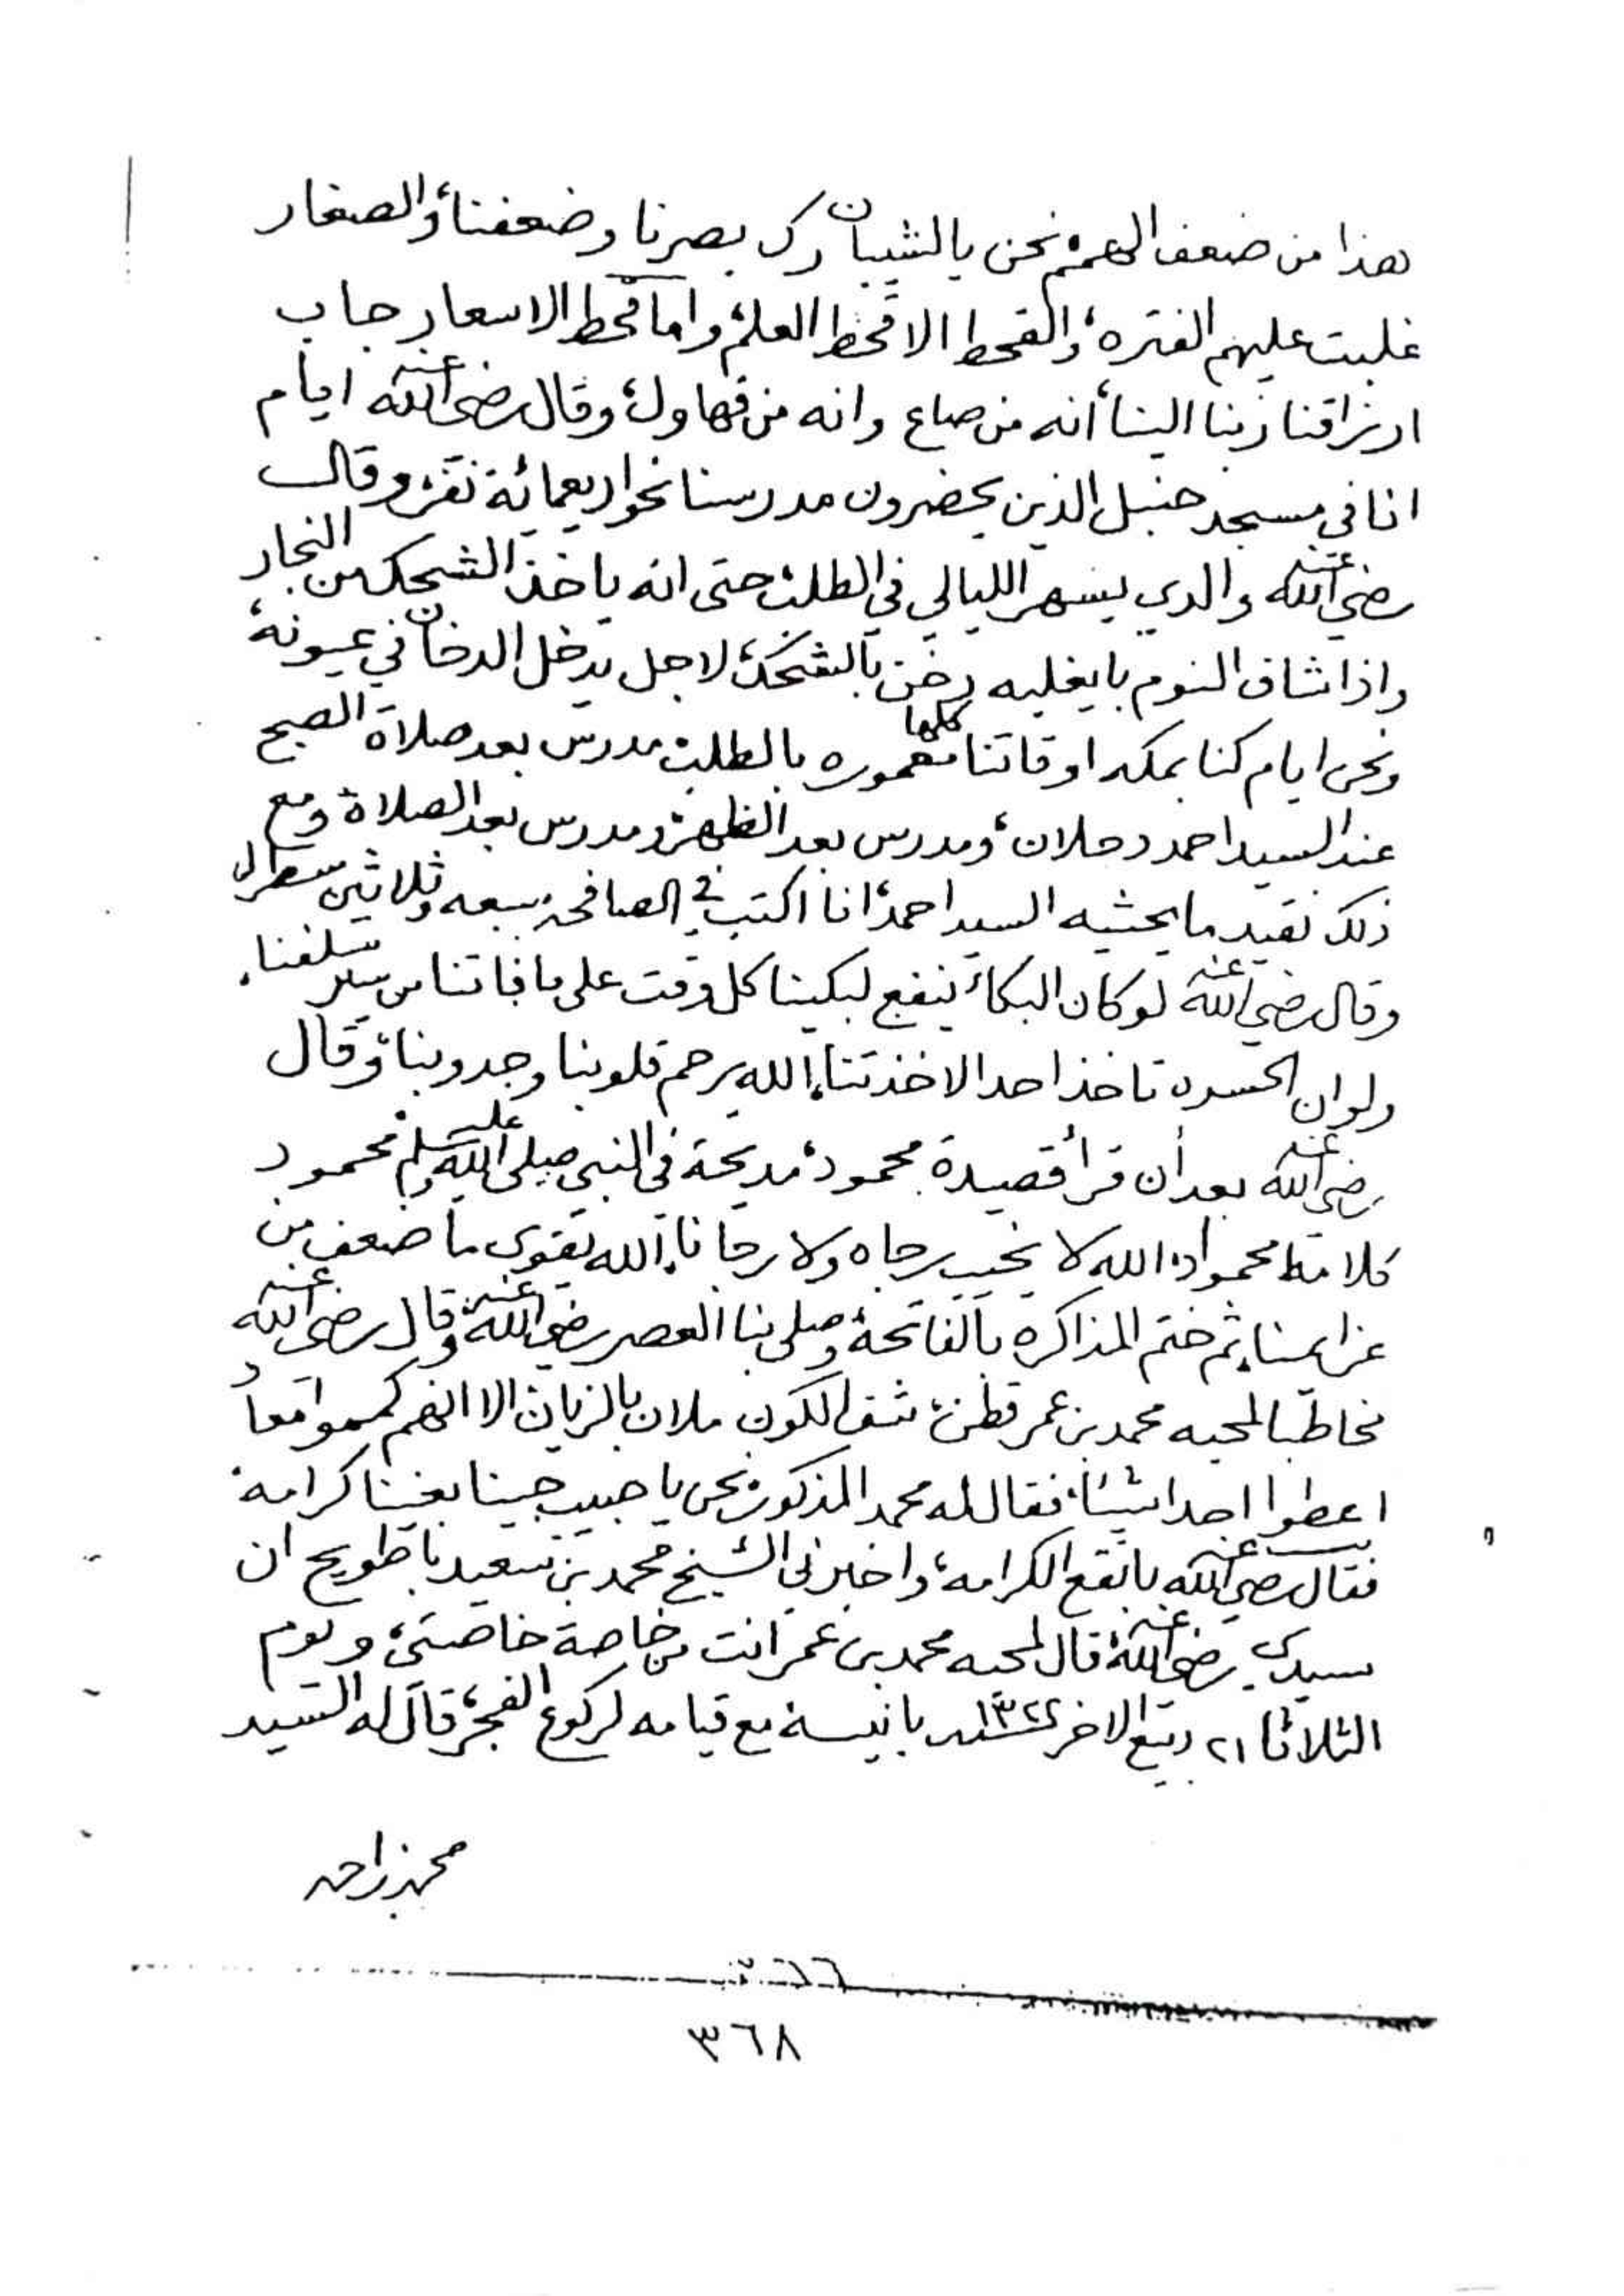 هذا من ضعف الهمم، نحن يالشيبان رك بصرنا وضعفنا، والصغار
غلبت عليهم الفتره، والقحط الا قحط العلم، واما قحط الاسعار جاب
ارزاقنا ربنا الينا، انه من صاع وانه من قهاول، وقال رضي الله عنه ايام
انا في مسجد حنبل الذين يحضرون مدرسنا نحو اربعمائة نفر، وقال
رضي الله عنه والدي يسهر الليالي في الطلب، حتى انه ياخذ الشحك من النجار
واذا شاف النوم بايغلبه دخن بالشحك، لاجل يدخل الدخان في عيونه،
ونحن ايام كنا بمكه اوقاتنا كلها معموره بالطلب، مدرس بعد صلاة الصبح
عند السيد احمد دحلان، ومدرس بعد الظهر، ومدرس بعد الصلاة، ومع
ذلك نقيد ما يحثيه السيد احمد، انا اكتب في الصافحه سبعه وثلاثين سطرا،
وقال رضي الله عنه لو كان البكاء ينفع لبكينا كل وقت على ما فاتنا من سير سلفنا،
ولو ان الحسره تاخذ احد الا خذتنا، الله يرحم قلوبنا وجدوبنا، وقال
رضي الله عنه بعد أن قرأ قصيدة محمود، مديحة في النبي صلى الله عليه وسلم، محمود
كلامه محمود، الله لا يخيب رجاه ولا رجانا، الله يقوي ما ضعف من
عزايمنا، ثم ختم المذاكره بالفاتحة، وصلى بنا العصر رضي الله عنه، وقال رضي الله عنه
مخاطبا لمحبه محمد بن عمر قطن، شف الكون ملان بالزيان الا انهم كمموا، قعاد
اعطوا احدا شيئا، فقال له محمد المذكور، نحن يا حبيب جينا بغينا كرامه،
فقال رضي الله عنه باتقع الكرامه، واخبرني الشيخ محمد بن سعيد باطويح ان
سيدي رضي الله عنه، قال لمحبه محمد بن عمر انت من خاصة خاصتي، ويوم
الثلاثا ٢١ ربيع الاخر سنة ١٣٢٢ بانيسه مع قيامه لركوع الفجر، قال له السيد
محمد بن احمد
٣٦٨